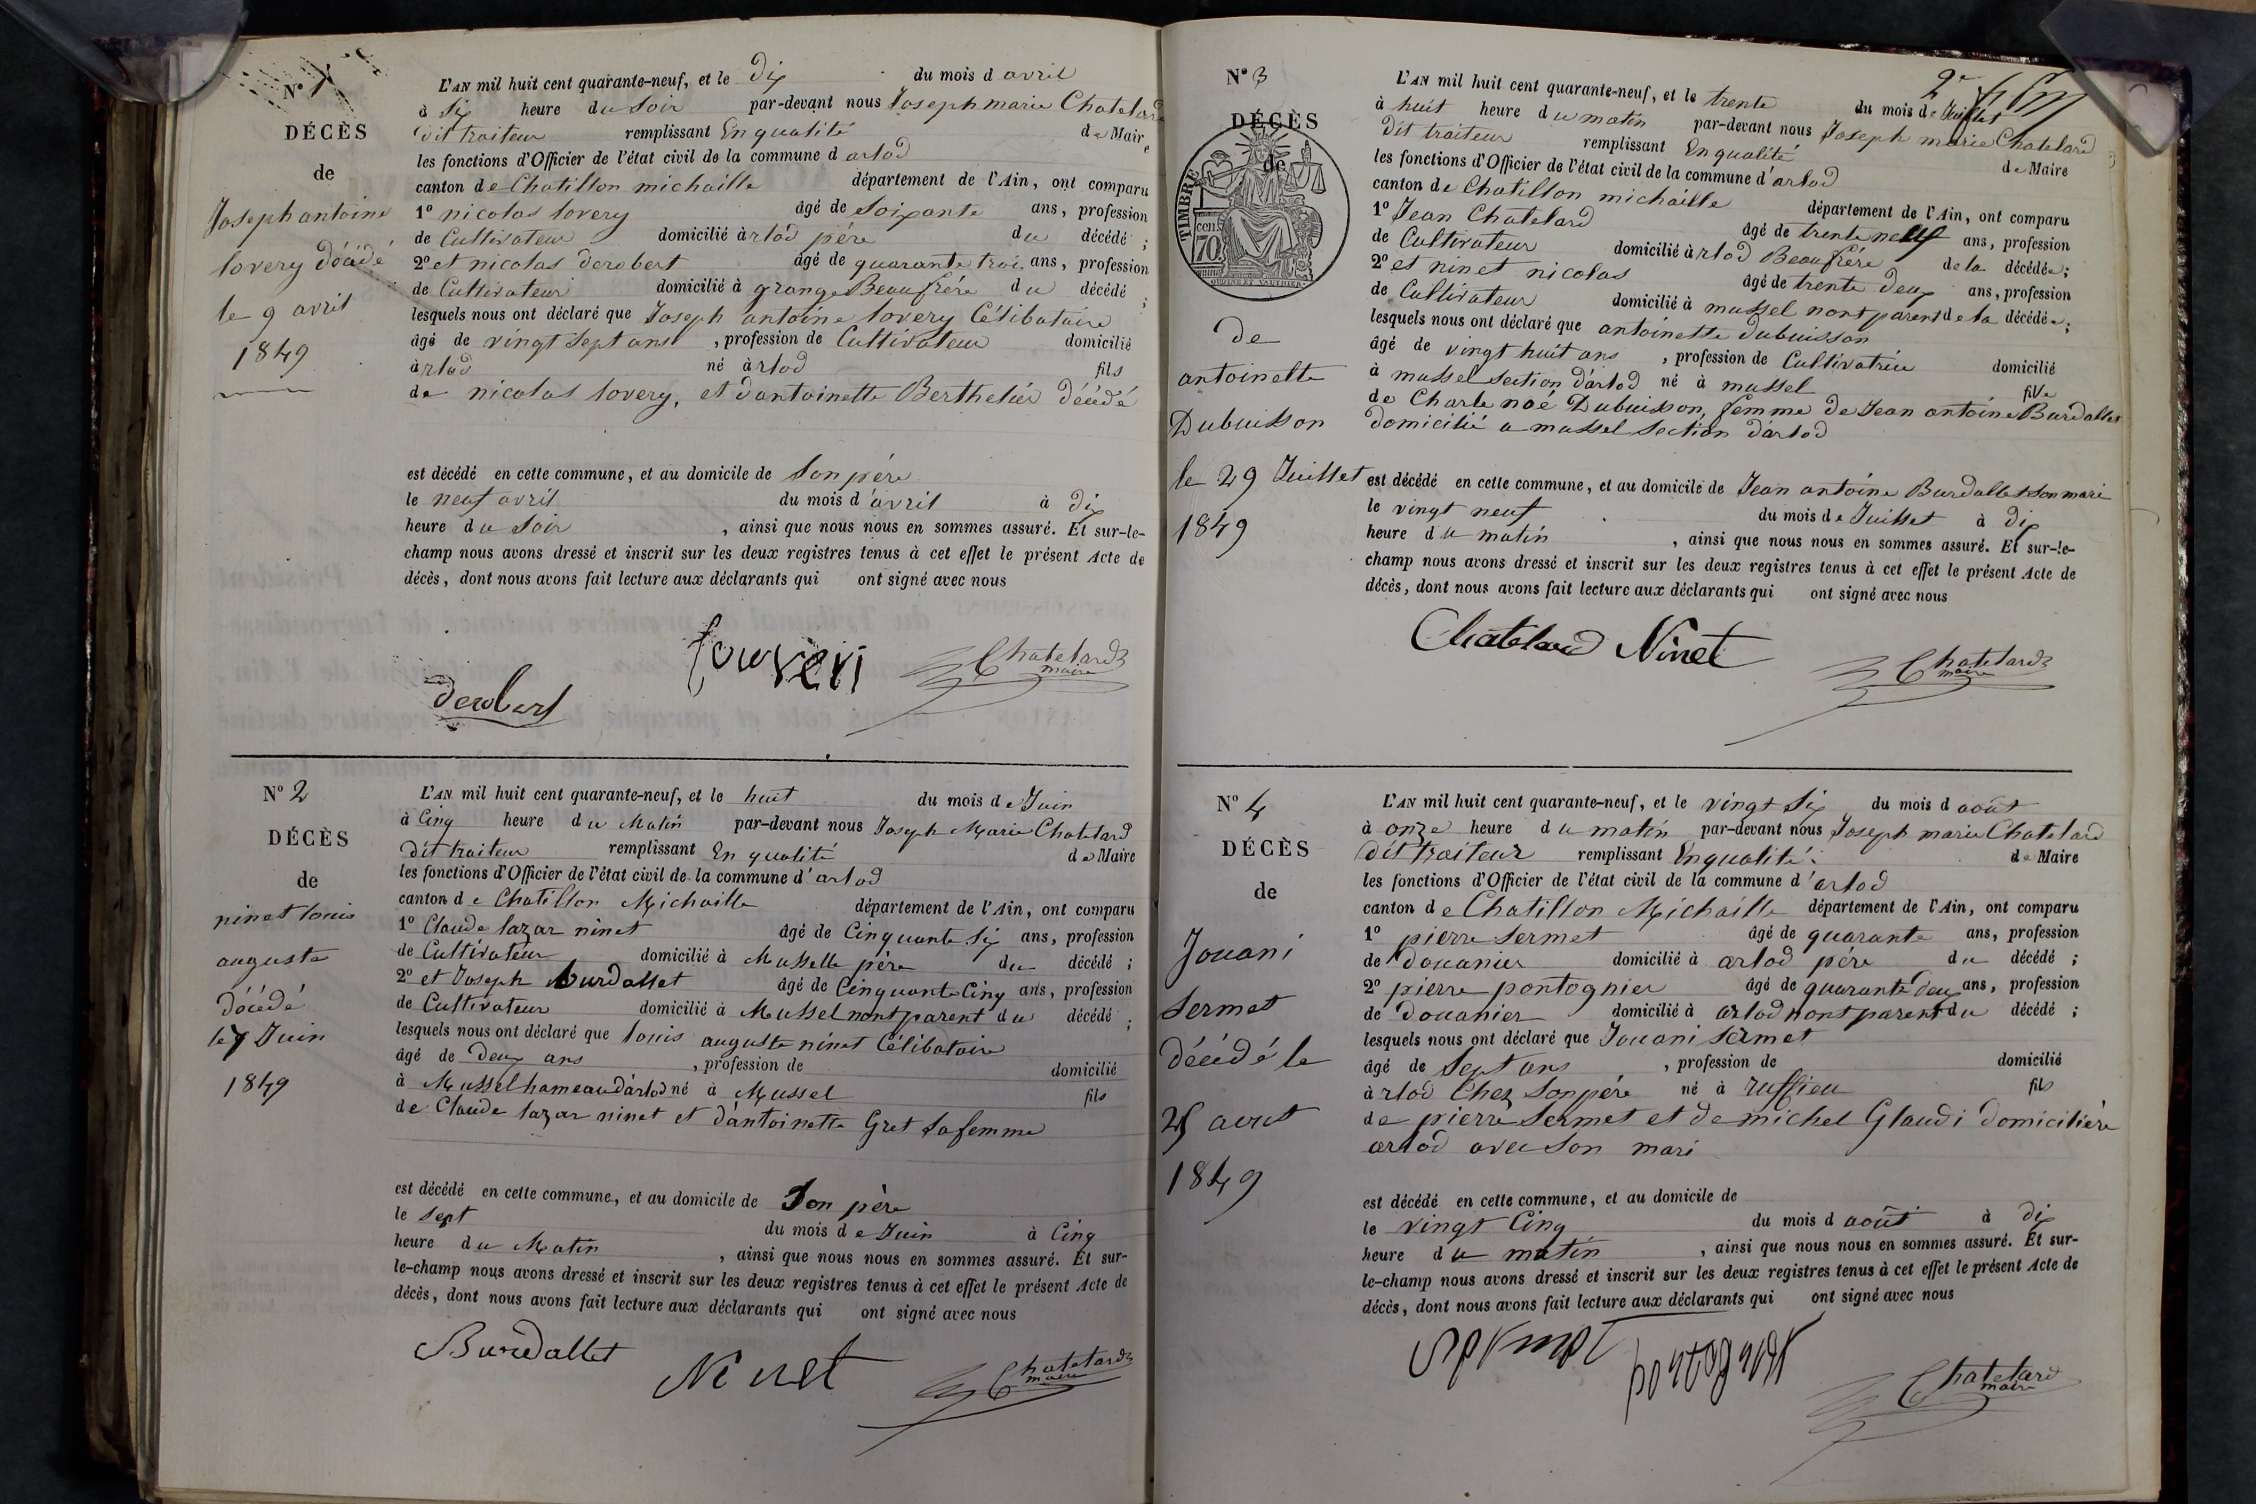 N° 1
DÉCÈS
de
Joseph antoine
lovery décédé
le 9 avril
1849
L'AN mil huit cent quarante-neuf, et le dix du mois d avril
à six heure du soir par-devant nous Joseph marie Chatelard
dit traiteur remplissant En qualité de Maire
les fonctions d'Officier de l'état civil de la commune d arlod
canton de Chatillon michaille département de l'Ain, ont comparu
1° nicolas lovery âgé de soixante ans, profession
de Cultivateur domicilié à rlod père du décédé ;
2° et nicolas derobert âgé de quarante trois ans, profession
de Cultivateur domicilié à granges Beaufrére du décédé ;
lesquels nous ont déclaré que Joseph antoine lovery Célibataire
âgé de vingt sept ans , profession de Cultivateur domicilié
à rlod né à rlod fils
de nicolas lovery, et dantoinette Berthelier décédé
est décédé en cette commune, et au domicile de son pére
le neuf avril du mois d'avril à dix
heure du soir , ainsi que nous nous en sommes assuré. Et sur-le-
champ nous avons dressé et inscrit sur les deux registres tenus à cet effet le présent Acte de
décès, dont nous avons fait lecture aux déclarants qui ont signé avec nous
derobert Chatelard
maire
N° 2
DÉCÈS
de
ninet louis
auguste
décédé
le 7 Juin
1849
L'AN mil huit cent quarante-neuf, et le huit du mois de Juin
à Cinq heure du Matin par-devant nous Joseph Marie Chatelard
dit traiteur remplissant En qualité de Maire
les fonctions d'Officier de l'état civil de la commune d'arlod
canton de Chatillon Michaille département de l'Ain, ont comparu
1° Claude lazar ninet âgé de Cinquante six ans, profession
de Cultivateur domicilié à Musselle père du décédé ;
2° et Joseph burdallet âgé de Cinquante Cinq ans, profession
de Cultivateur domicilié à Mussel nont parent du décédé ;
lesquels nous ont déclaré que louis auguste ninet Célibataire
âgé de deux ans , profession de domicilié
à Mussel hameau d'arlod né à Mussel fils
de Claude lazar ninet et d'antoinette Gret sa femme
est décédé en cette commune, et au domicile de Son père
le sept du mois de Juin à Cinq
heure du Matin , ainsi que nous nous en sommes assuré. Et sur-
le-champ nous avons dressé et inscrit sur les deux registres tenus à cet effet le présent Acte de
décès, dont nous avons fait lecture aux déclarants qui ont signé avec nous
Burdallet Ninet Chatelard
maire
N° 3
DÉCÈS
de
TIMBRE
cen.
70
de
antoinette
Dubuisson
le 29 Juillet
1849
2e
L'AN mil huit cent quarante-neuf, et le trente du mois de Juillet
à huit heure du matin par-devant nous Joseph marie Chatelard
dit traiteur remplissant En qualité de Maire
les fonctions d'Officier de l'état civil de la commune d'arlod
canton de Chatillon michaille département de l'Ain, ont comparu
1° Jean Chatelard âgé de trente neuf ans, profession
de Cultivateur domicilié à rlod Beaufrére de la décédée ;
2° et ninet nicolas âgé de trente deux ans, profession
de Cultivateur domicilié à mussel nont parent de la décédée ;
lesquels nous ont déclaré que antoinette Dubuisson
âgé de vingt huit ans , profession de Cultivatrice domicilié
à mussel section d'arlod né à mussel fille
de Charle noé Dubuisson, femme de Jean antoine Burdallet
domicilié a mussel section d'arlod
est décédé en cette commune, et au domicile de Jean antoine Burdallet son mari
le vingt neuf du mois de Juillet à dix
heure du matin , ainsi que nous nous en sommes assuré. Et sur-le-
champ nous avons dressé et inscrit sur les deux registres tenus à cet effet le présent Acte de
décès, dont nous avons fait lecture aux déclarants qui ont signé avec nous
Chatelard Ninet Chatelard
maire
N° 4
DÉCÈS
de
Jouani
sermet
décédé le
25 aout
1849
L'AN mil huit cent quarante-neuf, et le vingt six du mois d août
à onze heure du matin par-devant nous Joseph marie Chatelard
dit traiteur remplissant En qualité de Maire
les fonctions d'Officier de l'état civil de la commune d'arlod
canton de Chatillon Michaille département de l'Ain, ont comparu
1° pierre sermet âgé de quarante ans, profession
de douanier domicilié à arlod pére du décédé ;
2° pierre pontognier âgé de quarante deux ans, profession
de douanier domicilié à arlod nont parent du décédé ;
lesquels nous ont déclaré que Jouani sermet
âgé de sept ans , profession de domicilié
à rlod Chez son pére né à ruffieu fils
de pierre sermet et de michel Glaudi domicilière
arlod avec son mari
est décédé en cette commune, et au domicile de
le vingt Cinq du mois d août à dix
heure du matin , ainsi que nous nous en sommes assuré. Et sur-
le-champ nous avons dressé et inscrit sur les deux registres tenus à cet effet le présent Acte de
décès, dont nous avons fait lecture aux déclarants qui ont signé avec nous
Chatelard
maire